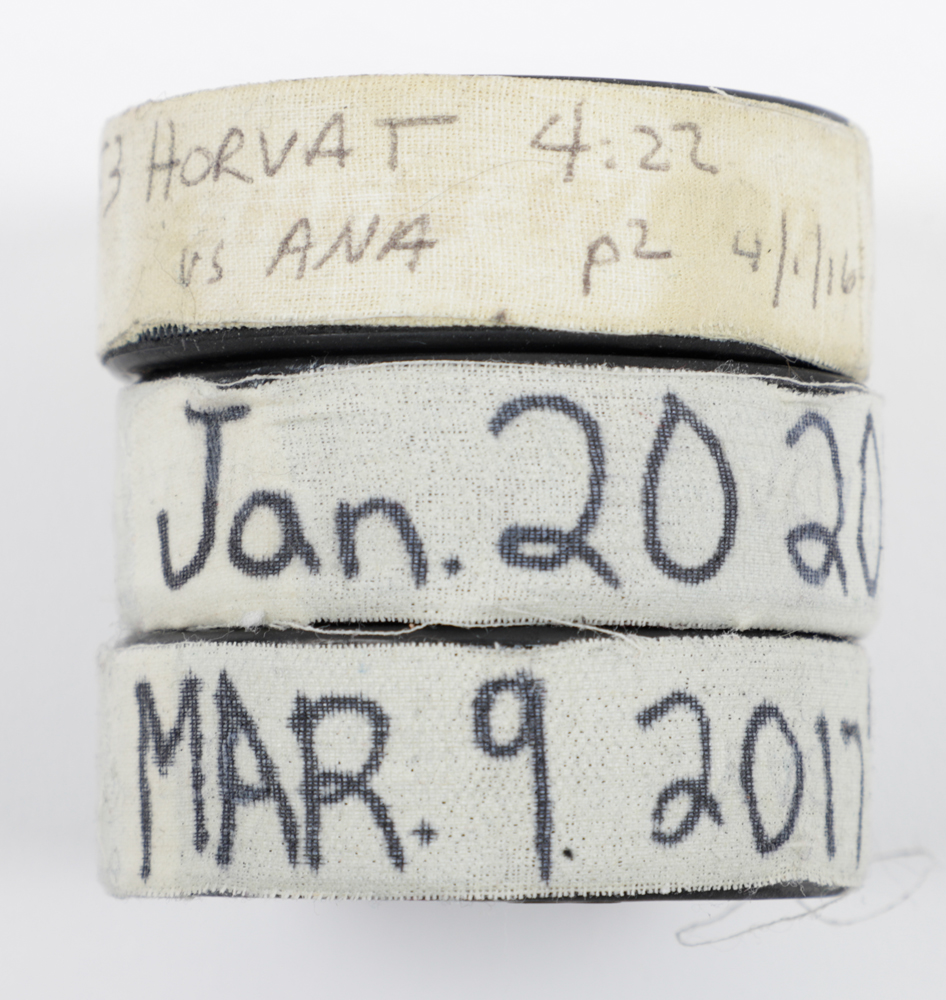 3 HORVAT 4:22
vs ANA p2 4/1/16
Jan. 20 20
MAR. 9 2017